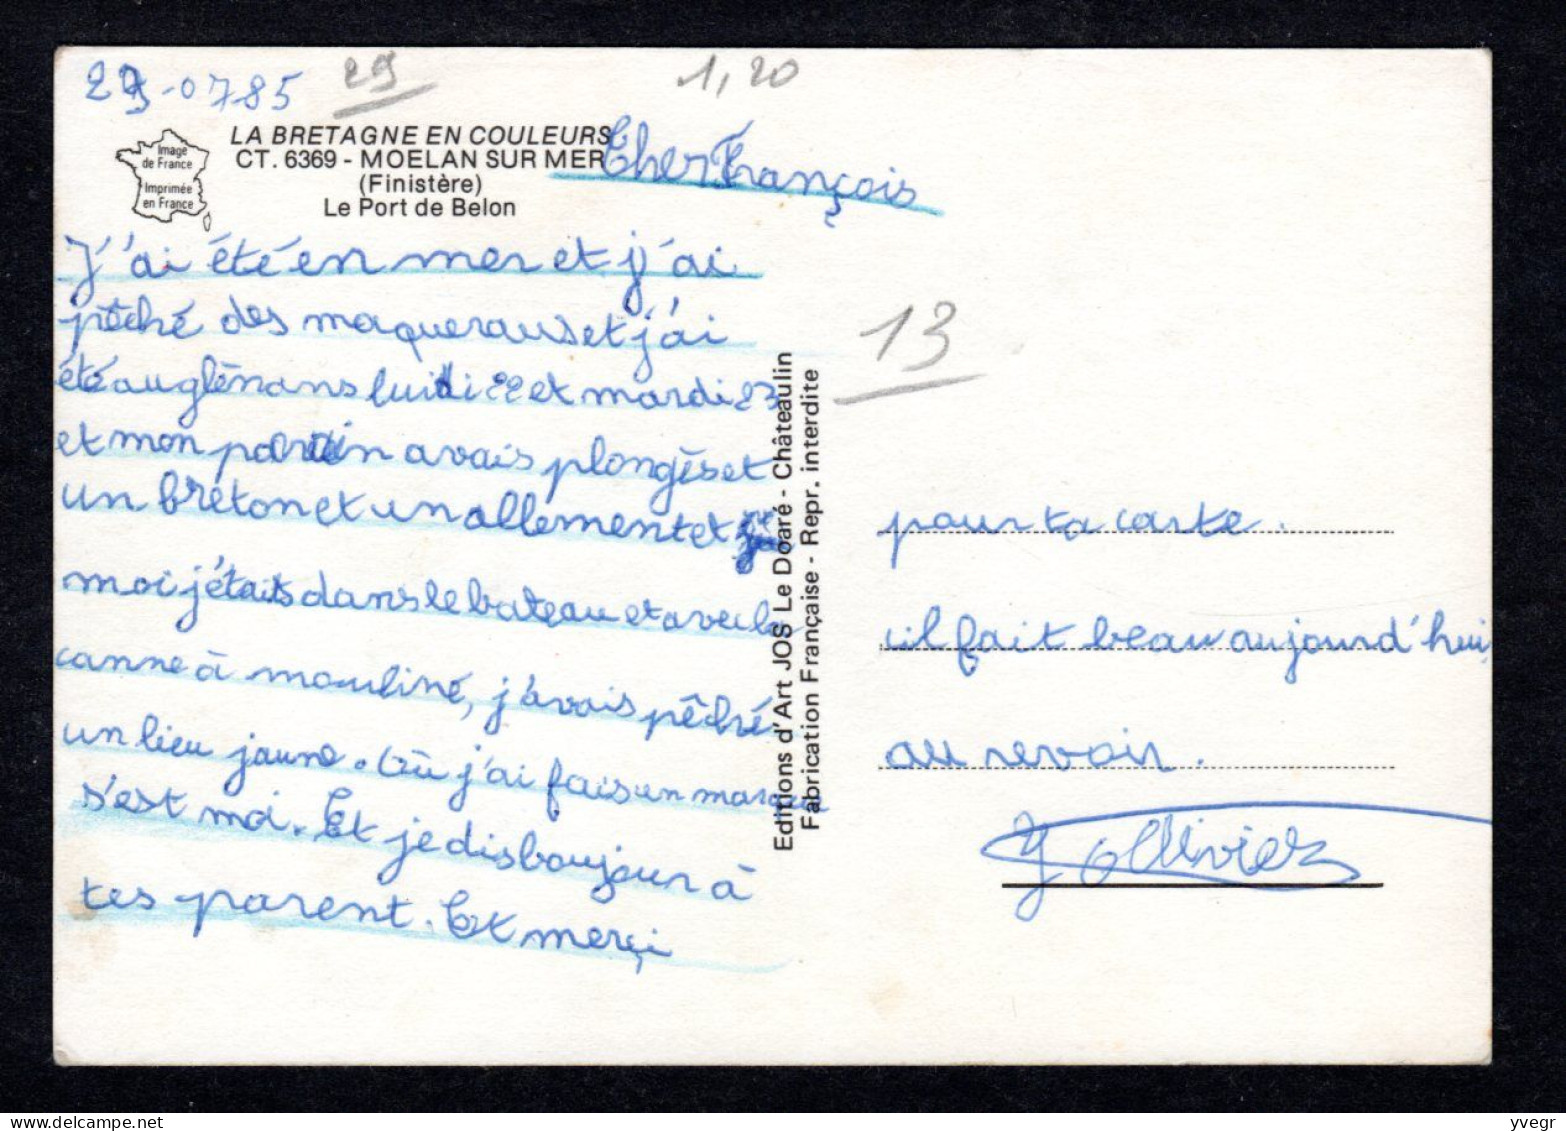 29-0785
29
1,20
LA BRETAGNE EN COULEURS
CT. 6369 - MOELAN SUR MER
(Finistère)
Le Port de Belon
Image
de France
Imprimée
en France
Cher François
J'ai été en mer et j'ai
pêché des maqueraus et j'ai
été au glénans lundi 22 et mardi 23
et mon parrain avais plongés et
un breton et un allement et
moi j'étais dans le bateau et avec la
canne à mouliné, j'avais pêché
un lieu jaune. Où j'ai fais un
s'est moi. Et je dis boujour à
tes parent. Et merçi
Editions d'Art JOS Le Doaré - Châteaulin
Fabrication Française - Repr. interdite
13
pour ta carte.
il fait beau aujourd'hui,
au revoir.
J ollivier
yvegr
delcampe.net